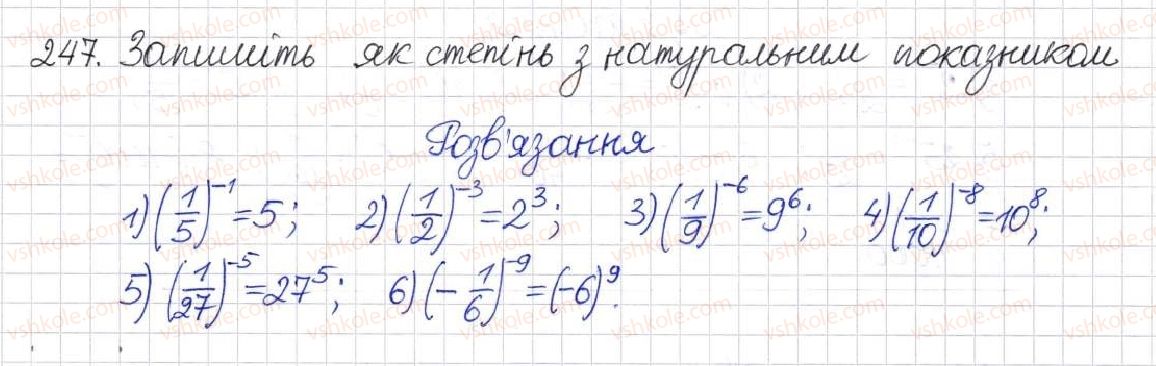 247. Запишіть як степінь з натуральним показником
Розв'язання
1) (1/5)^-1 = 5; 2) (1/2)^-3 = 2^3; 3) (1/9)^-6 = 9^6; 4) (1/10)^-8 = 10^8;
5) (1/27)^-5 = 27^5; 6) (-1/6)^-9 = (-6)^9.